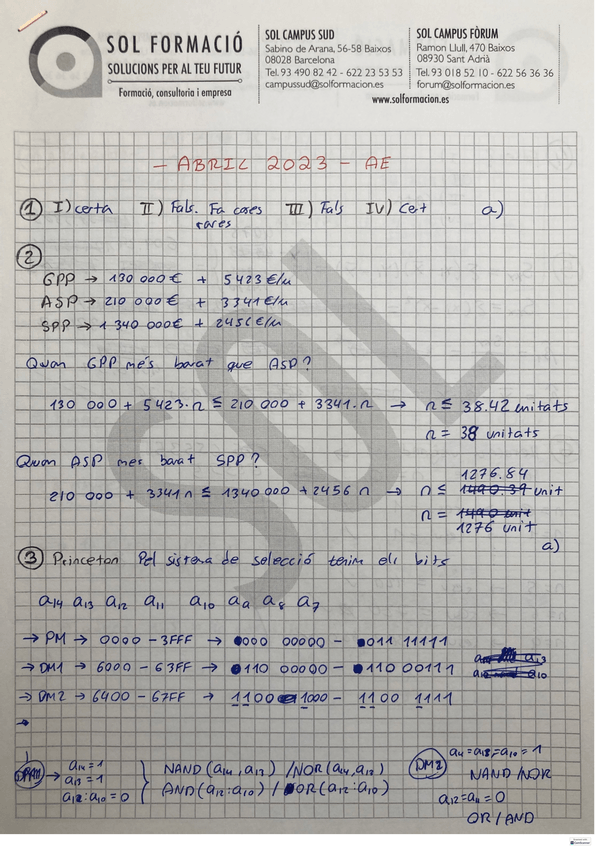 SOL FORMACIÓ
SOLUCIONS PER AL TEU FUTUR
Formació, consultoria i empresa
SOL CAMPUS SUD
Sabino de Arana, 56-58 Baixos
08028 Barcelona
Tel. 93 490 82 42 - 622 23 53 53
campussud@solformacion.es
SOL CAMPUS FÒRUM
Ramon Llull, 470 Baixos
08930 Sant Adrià
Tel. 93 018 52 10 - 622 56 36 36
forum@solformacion.es
www.solformacion.es
SOL
- ABRIL 2023 - AE
1 I) certa II) Fals. Fa cores rares III) Fals IV) Cert a)
2
GPP → 130 000€ + 5423 €/u
ASP → 210 000€ + 3341 €/u
SPP → 1 340 000€ + 2456 €/u
Quan GPP més barat que ASP?
130 000 + 5423·n ≤ 210 000 + 3341·n → n ≤ 38.42 unitats
n = 38 unitats
Quan ASP mes barat SPP?
1276.84
210 000 + 3341 n ≤ 1340 000 + 2456 n → n ≤ 1490.39 unit
n = 1490 unit
1276 unit
a)
3 Princeton Pel sistema de selecció tenim els bits
a14 a13 a12 a11 a10 a9 a8 a7
→ PM → 0000 - 3FFF → 000 00000 - 011 11111
→ DM1 → 6000 - 63FF → 110 00000 - 110 00111
→ DM2 → 6400 - 67FF → 1100 1000 - 1100 1111
a14 = 1
a13 = 1
a12:a10 = 0
NAND(a14, a13) / NOR(a14, a13)
AND(a12:a10) / OR(a12:a10)
DM2
a14 = a13 = a10 = 1
NAND/NOR
a12 = a11 = 0
OR/AND